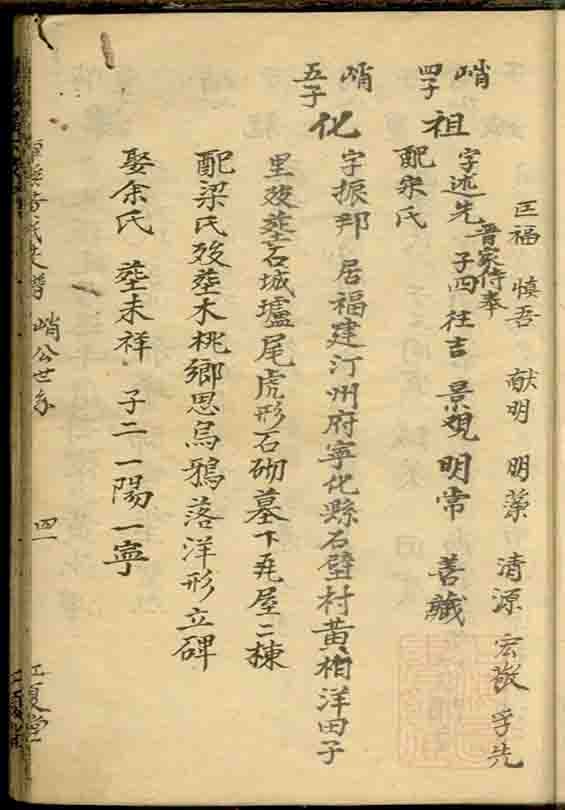 匡福 慎吾 献明 明藻 清源 宏嶽 孚先
峭四子
祖
字述先 晋家侍奉 子四 往吉 景覌 明常 善䄜
配宋氏
峭五子
化
字振邦 居福建汀州府寧化縣石壁村黄栢洋田子
里歿塟石城壚尾虎形石砌墓下瓦屋二棟
配梁氏歿塟木桃鄉思烏鴉落洋形立碑
娶余氏 塟未祥 子二 一陽 一寧
黄氏史譜 峭公世系 四一 江夏堂